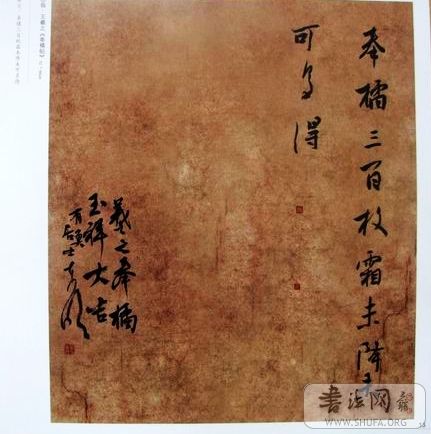 奉橘三百枚霜未降未
可多得
羲之奉橘
玉祥大吉
王羲之《奉橘帖》
書法网
WWW.SHUFA.ORG